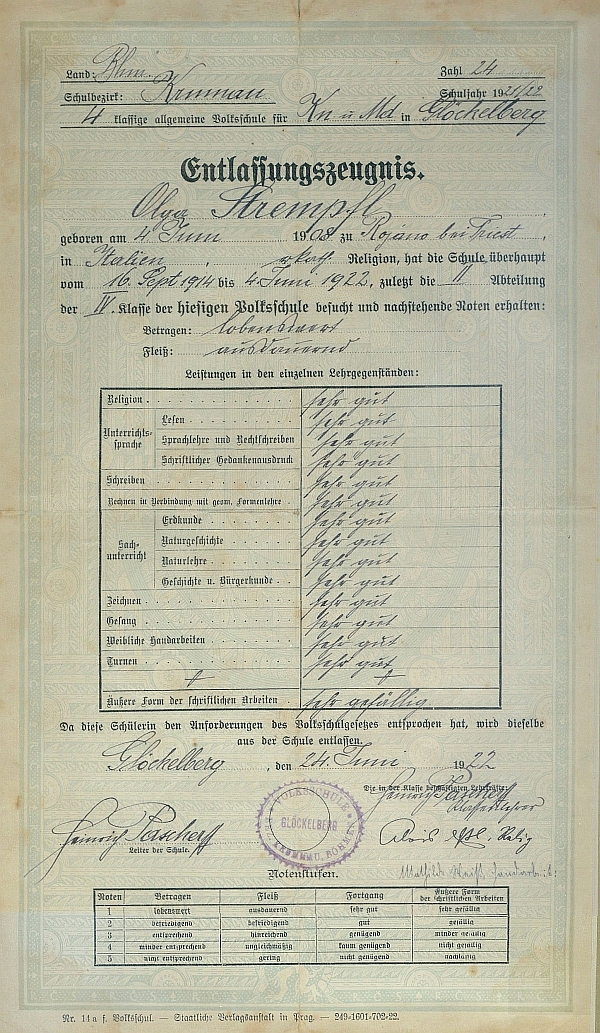 Land: Bhm. Zahl 24
Schulbezirk: Krumau Schuljahr 1921/22
4 klassige allgemeine Volksschule für Kn u Md in Glöckelberg
Entlassungszeugnis.
Olga Strempfl
geboren am 4 Juni 1908 zu Rojano bei Triest,
in Italien, rkath Religion, hat die Schule überhaupt
vom 16. Sept 1914 bis 4. Juni 1922, zuletzt die II Abteilung
der IV. Klasse der hiesigen Volksschule besucht und nachstehende Noten erhalten:
Betragen: lobenswert
Fleiß: ausdauernd
Leistungen in den einzelnen Lehrgegenständen:
Religion sehr gut
Unterrichtssprache
Lesen sehr gut
Sprachlehre und Rechtschreiben sehr gut
Schriftlicher Gedankenausdruck sehr gut
Schreiben sehr gut
Rechnen in Verbindung mit geom. Formenlehre sehr gut
Sachunterricht
Erdkunde sehr gut
Naturgeschichte sehr gut
Naturlehre sehr gut
Geschichte u. Bürgerkunde sehr gut
Zeichnen sehr gut
Gesang sehr gut
Weibliche Handarbeiten sehr gut
Turnen sehr gut
Äußere Form der schriftlichen Arbeiten sehr gefällig
Da diese Schülerin den Anforderungen des Volksschulgesetzes entsprochen hat, wird dieselbe
aus der Schule entlassen.
Glöckelberg, den 24. Juni 1922
Die in der Klasse beschäftigten Lehrkräfte:
Heinrich Pascher
Klassenlehrer
VOLKSSCHULE
GLÖCKELBERG
Heinrich Pascher
Leiter der Schule.
Alois Relig
Mathilde Weiß Handarbeit
Notenstufen.
Noten Betragen Fleiß Fortgang Äußere Form der schriftlichen Arbeiten
1 lobenswert ausdauernd sehr gut sehr gefällig
2 befriedigend befriedigend gut gefällig
3 entsprechend hinreichend genügend minder gefällig
4 minder entsprechend ungleichmäßig kaum genügend nicht gefällig
5 nicht entsprechend gering nicht genügend nachlässig
Nr. 14 a f. Volksschul. — Staatliche Verlagsanstalt in Prag. — 249-1601-702-22.